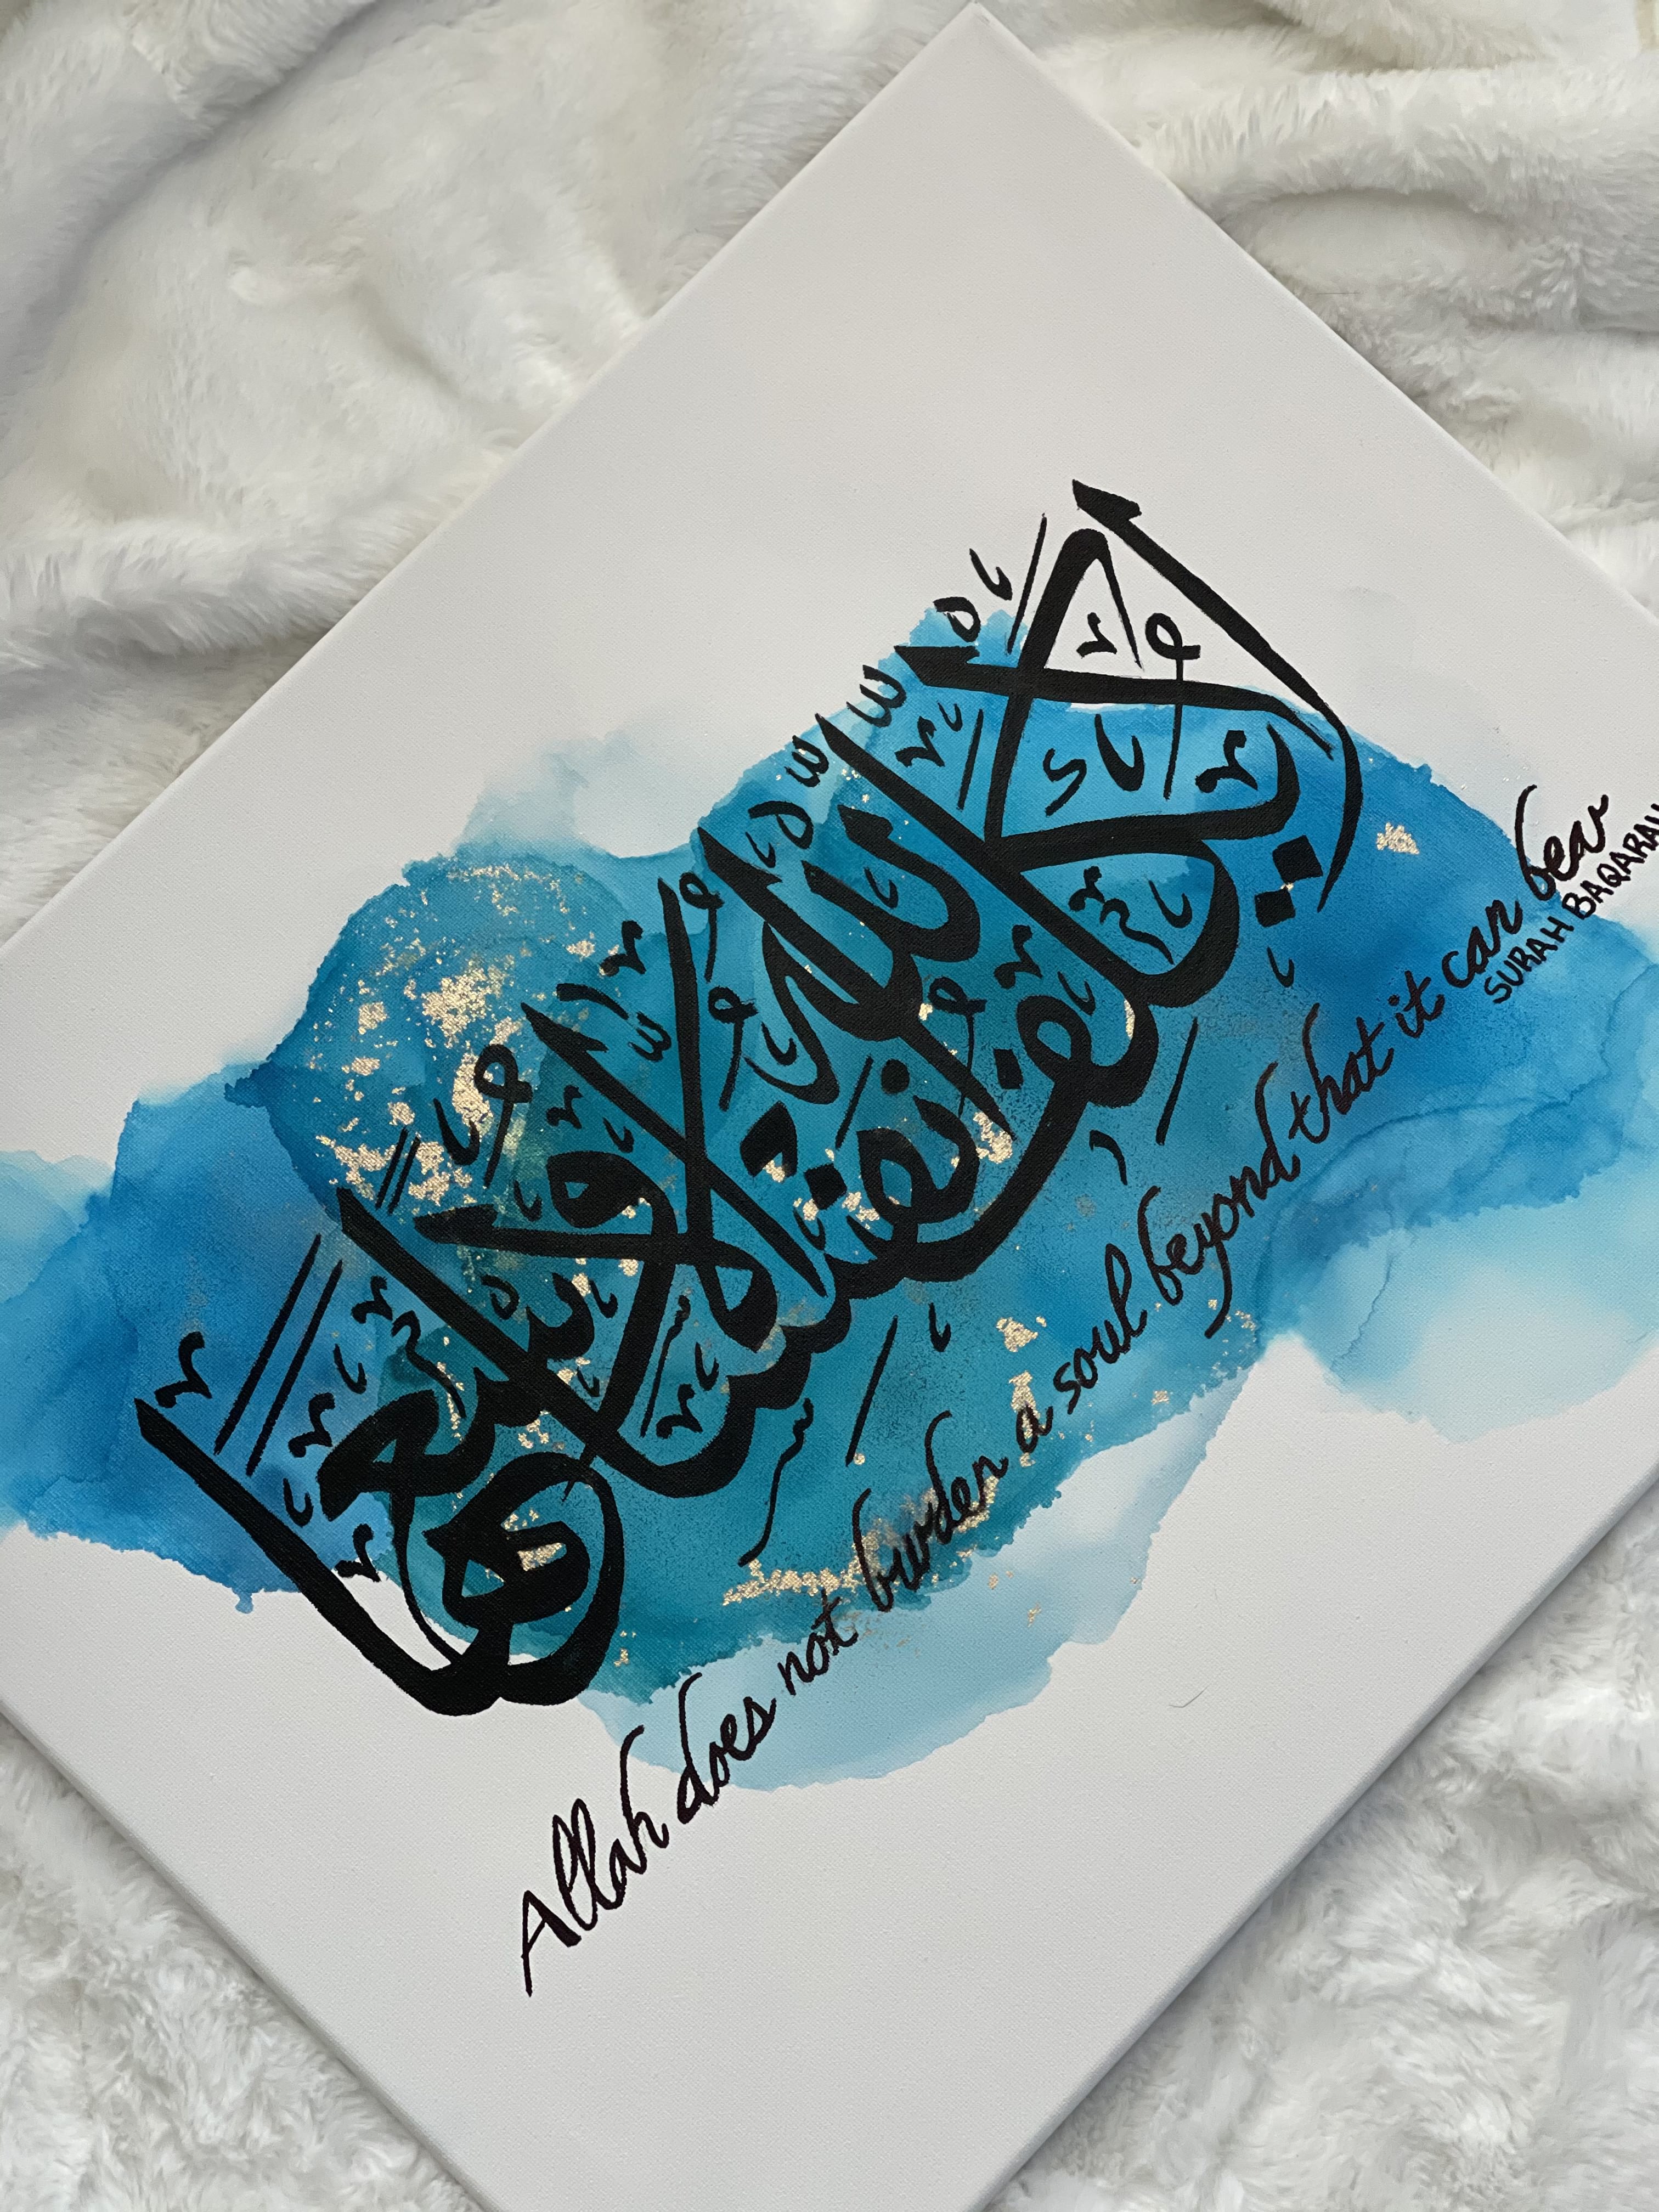 لا يكلف الله نفسا إلا وسعها
Allah does not burden a soul beyond that it can bear
SURAH BAQARAH